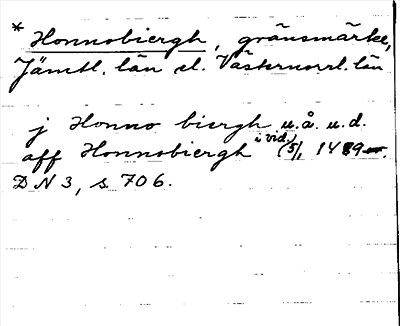 * Honnobiergh, gränsmärke,
Jämtl. län el. Västernorrl. län
j Honno biergh u.å. u.d.
aff Honnobiergh i vid. (5/, 1489.
DN 3, s. 706.